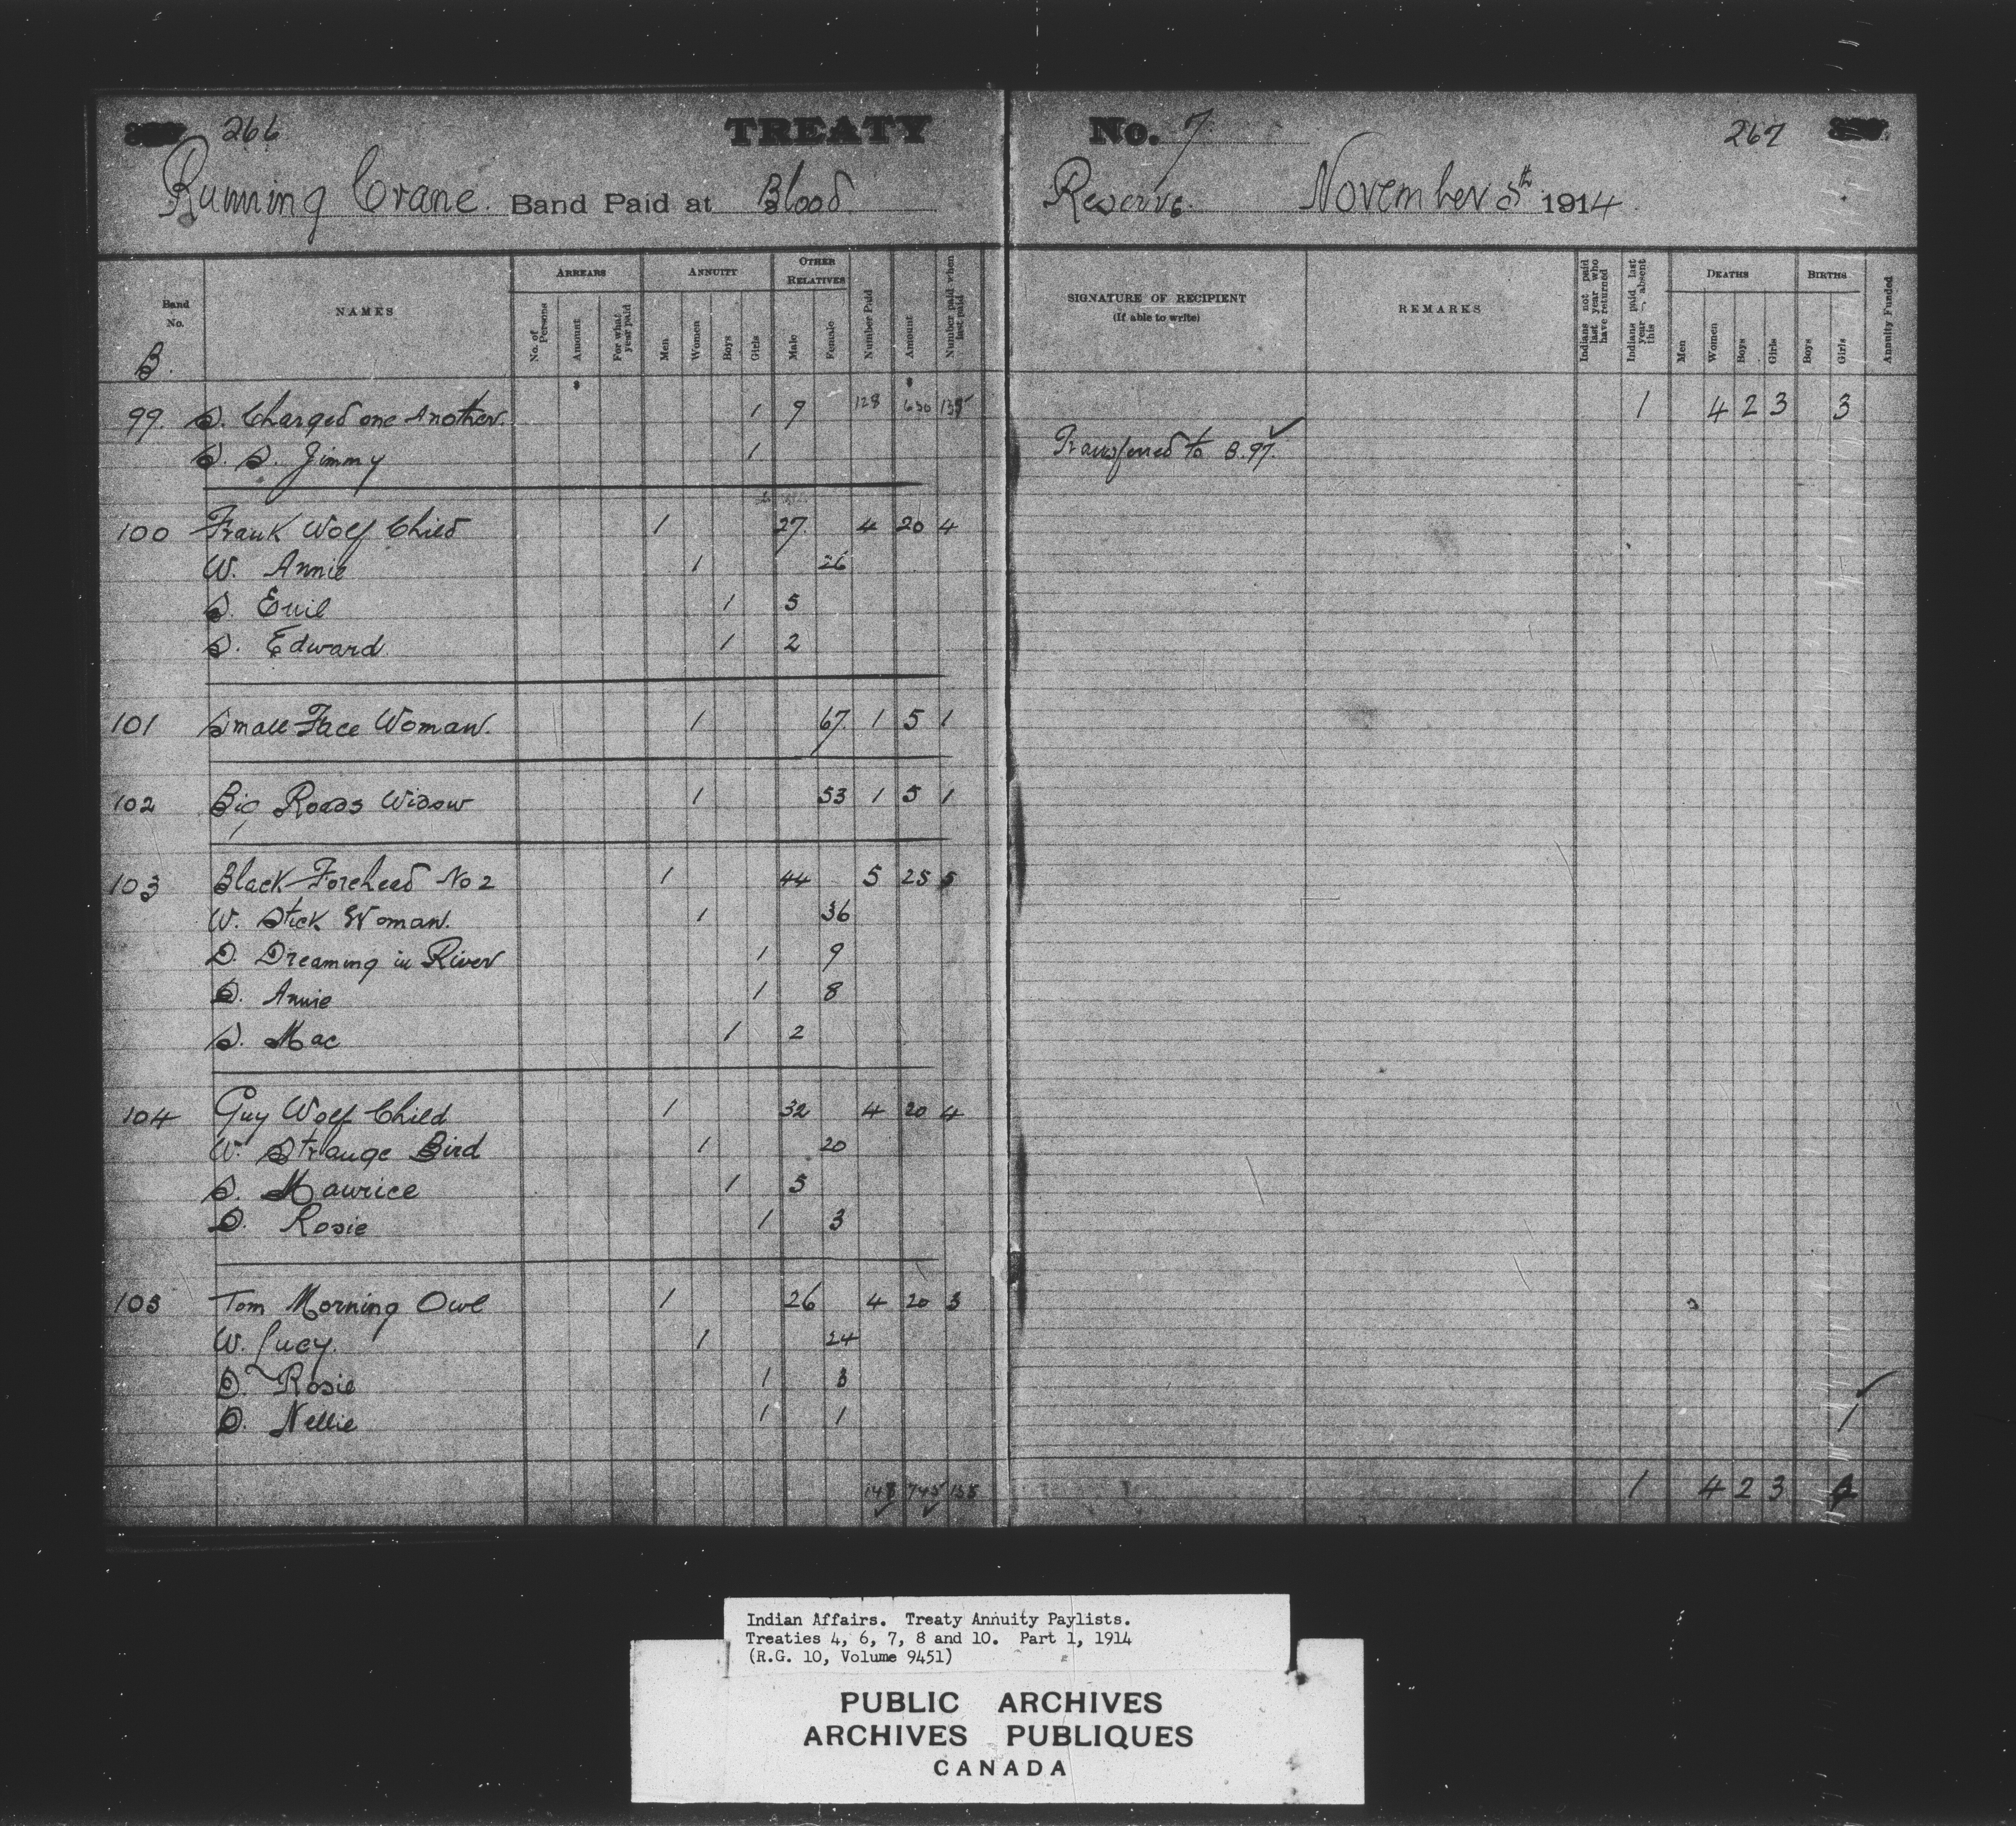 266 TREATY No. 7 267
Running Crane Band Paid at Blood Reserve November 5th 1914
Band No. NAMES ARREARS No. of Persons Amount For what year paid ANNUITY Men Women Boys Girls OTHER RELATIVES Male Female Number Paid Amount Number paid when last paid SIGNATURE OF RECIPIENT (If able to write) REMARKS Indians not paid last year who have returned Indians paid last year —, absent this DEATHS Men Women Boys Girls BIRTHS Boys Girls Annuity Funded
B.
$ $
99. S. Charged one Another. 1 9 128 630 135 1 4 2 3 3
S. S. Jimmy 1 Transferred to B.97.
100 Frank Wolf Child 1 27 4 20 4
W. Annie 1 26
S. Evil 1 5
S. Edward 1 2
101 Small Face Woman. 1 67 1 5 1
102 Big Roads Widow 1 53 1 5 1
103 Black Forehead No 2 1 44 5 25 5
W. Stick Woman. 1 36
D. Dreaming in River 1 9
D. Annie 1 8
S. Mac 1 2
104 Guy Wolf Child 1 32 4 20 4
W. Strange Bird 1 20
S. Maurice 1 5
D. Rosie 1 3
105 Tom Morning Owl 1 26 4 20 3
W. Lucy. 1 24
D. Rosie 1 3
D. Nellie 1 1 1
745 1 4 2 3 4
Indian Affairs. Treaty Annuity Paylists.
Treaties 4, 6, 7, 8 and 10. Part 1, 1914
(R.G. 10, Volume 9451)
PUBLIC ARCHIVES
ARCHIVES PUBLIQUES
CANADA